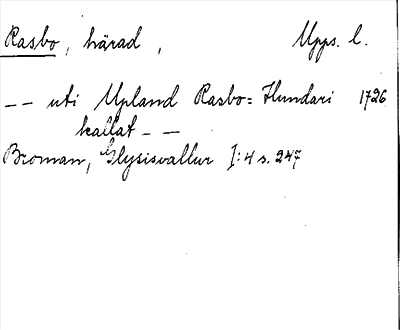 Rasbo, härad, Upps. l.
– – uti Upland Rasbo= Hundari 1726
kallat – –
Broman, Glysisvallur I:4 s. 247